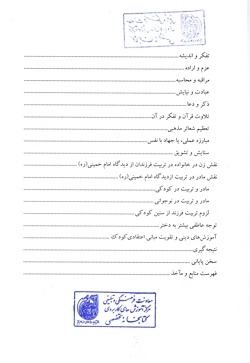 تفکر و اندیشه
عزم و اراده
مراقبه و محاسبه
عبادت و نیایش
ذکر و دعا
تلاوت قرآن و تفکر در آن
تعظیم شعائر مذهبی
مبارزه عملی، یا جهاد با نفس
ستایش و تشویق
نقش زن در خانواده در تربیت فرزندان از دیدگاه امام خمینی(ره)
نقش مادر در تربیت ازدیدگاه امام خمینی(ره)
مادر و تربیت در کودکی
مادر و تربیت در نوجوانی
لزوم تربیت فرزند از سنین کودکی
توجه عاطفی بیشتر به دختر
آموزش‌های دینی و تقویت مبانی اعتقادی کودک
نتیجه گیری
سخن پایانی
فهرست منابع و مآخذ
معاونت فرهنگی و تبلیغی
مرکز آموزش‌های کاربردی
کتابخانه تخصصی